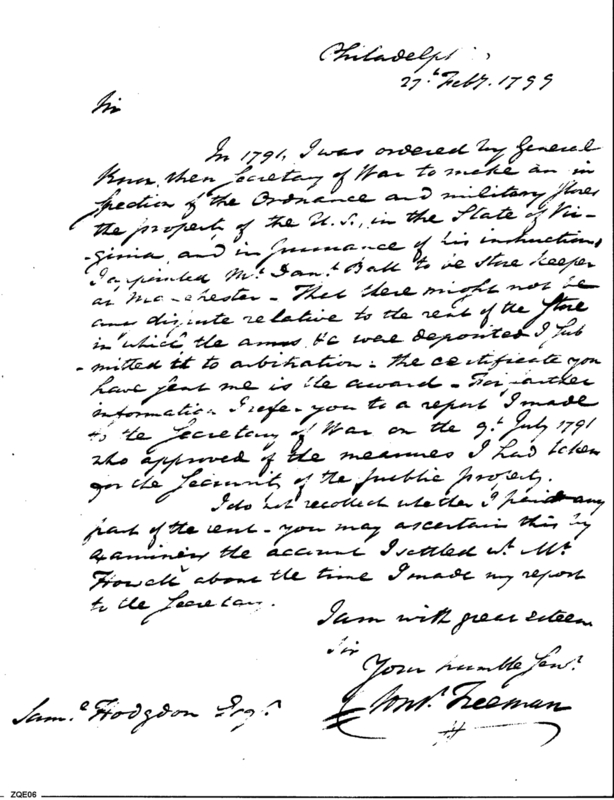 Philadelph
27th Feby. 1799
Sir
In 1791, I was ordered by General
Knox then Secretary of War to make an in
spection of the Ordnance and military stores
the property of the U.S., in the State of Vir-
-ginia, and in pursuance of his instructions
I appointed Mr. Danl. Ball to be store keeper
at Manchester - That there might not be
any dispute relative to the rent of the Store
in which the arms &c were deposited I sub
-mitted it to arbitration - the certificate you
have sent me is the award - For farther
information I refer you to a report I made
to the Secretary of War on the 9th July 1791
who approved of the measures I had taken
for the security of the public property.
I do not recollect whether I paid any
part of the rent - you may ascertain this by
examining the account I settled wt. Mr.
Howell about the time I made my report
to the Secretary.
I am with great esteem
Sir
Your humble Servt.
Constt. Freeman
Saml. Hodgdon Esqr.
ZQE06